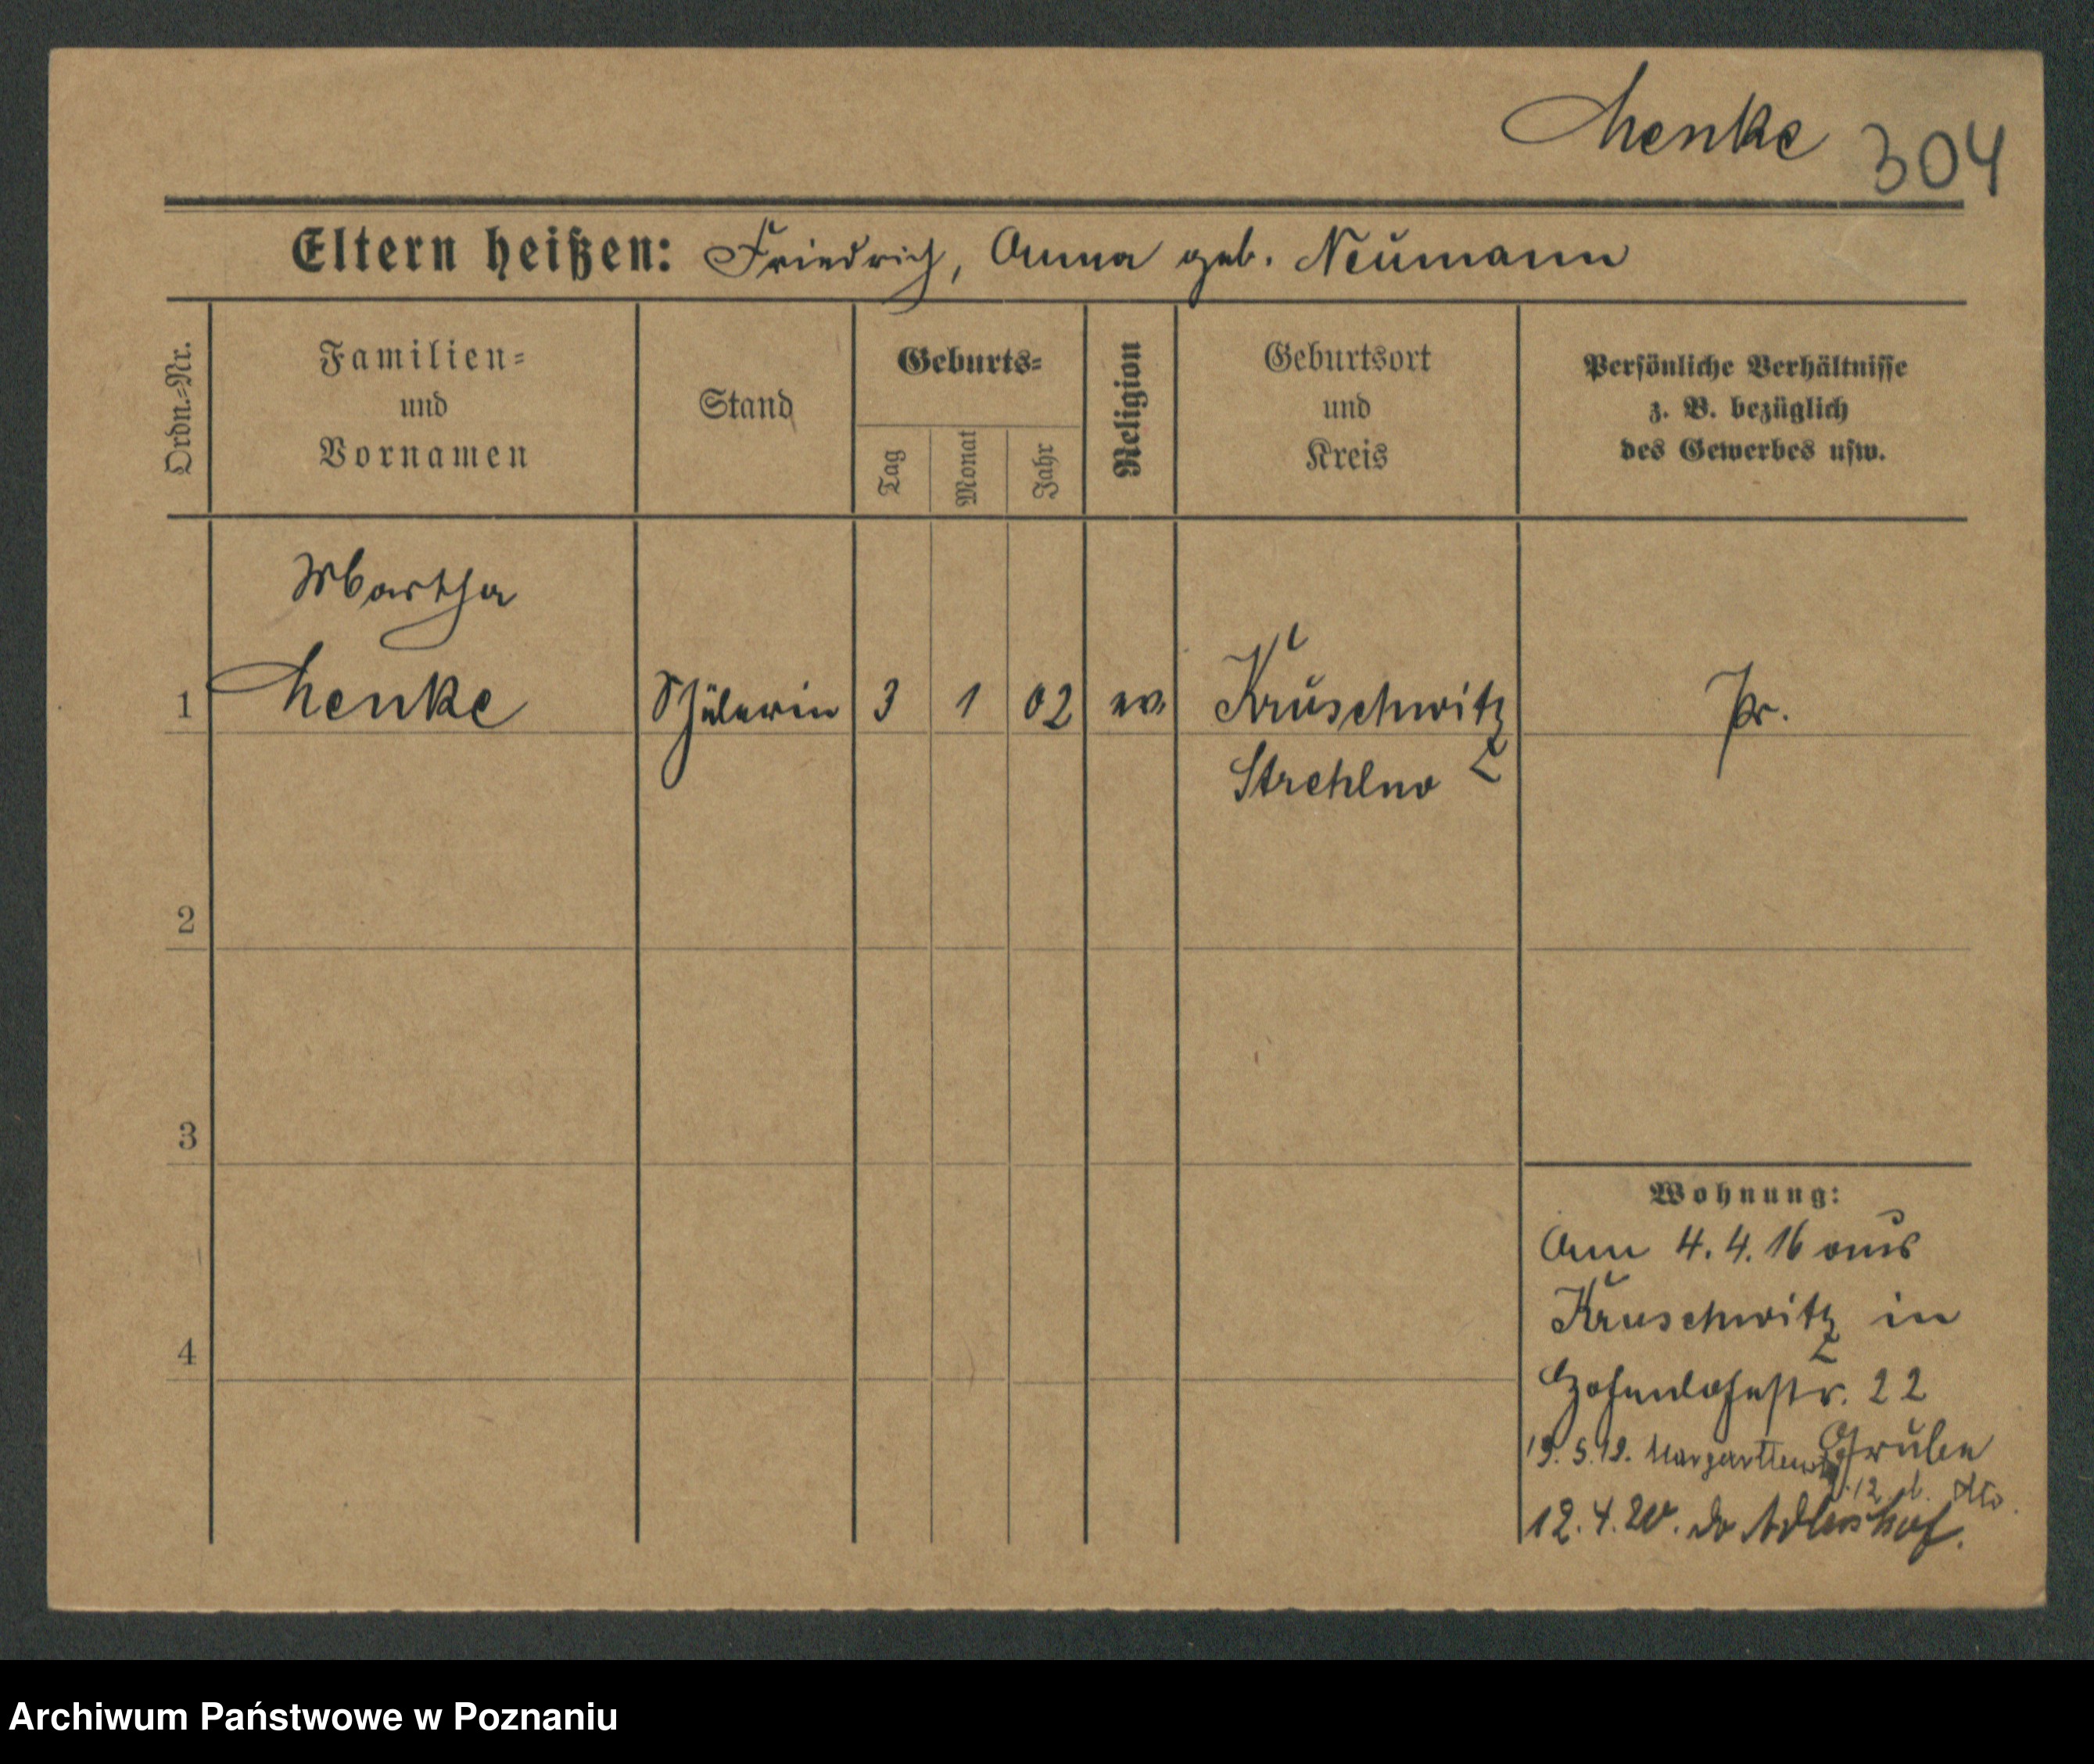 Menke 304
Eltern heißen: Friedrich, Anna geb. Neumann
Ordn.=Nr.
Familien=
und
Vornamen
Stand
Geburts=
Tag
Monat
Jahr
Religion
Geburtsort
und
Kreis
Persönliche Verhältnisse
z. B. bezüglich
des Gewerbes usw.
Martha
1 Menke Schülerin 3 1 02 ev. Kruschwitz Pr.
Strehlno
2
3
4
Wohnung:
Am 4.4.16 aus
Kruschwitz in
Hohenlohestr. 22
19.5.19. Gruben
12 b. dto.
12.4.20. do Adlershof.
Archiwum Państwowe w Poznaniu